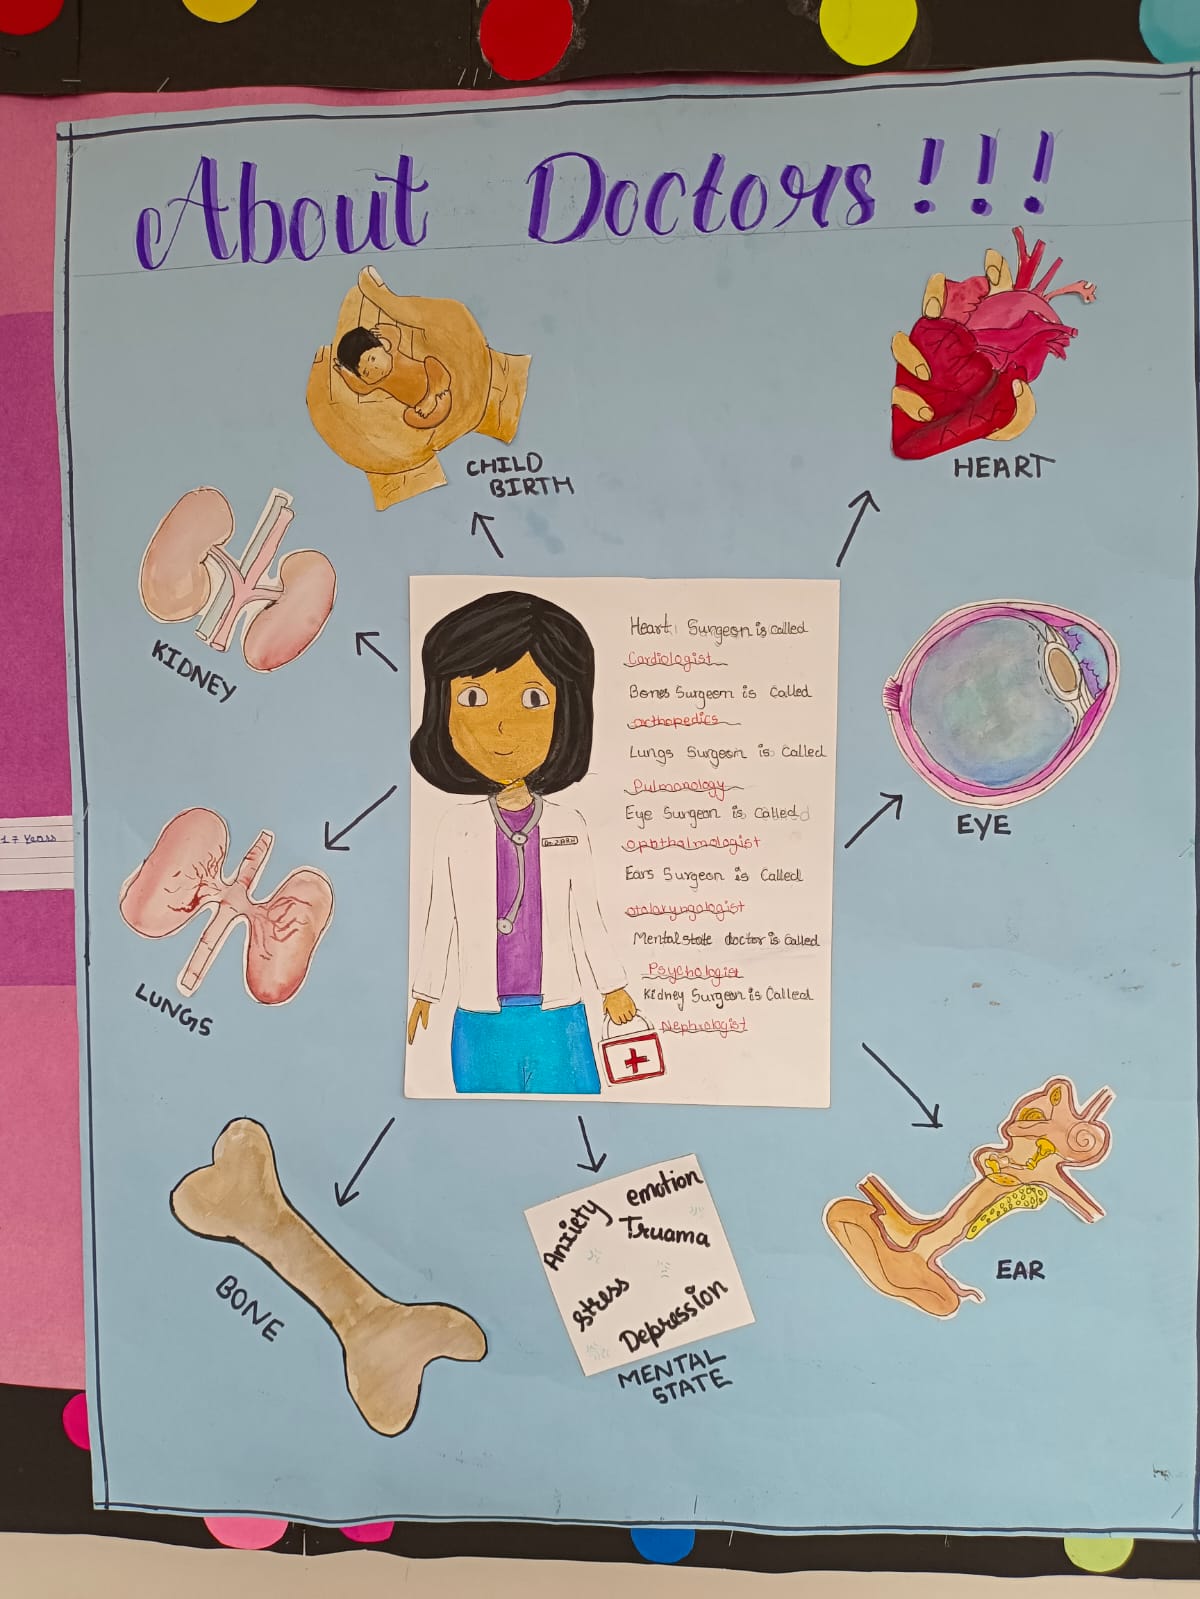 About Doctors!!!
CHILD
BIRTH
HEART
KIDNEY
Heart Surgeon is called
Cardiologist
Bones Surgeon is called
orthopedics
Lungs Surgeon is called
Pulmonology
Eye Surgeon is called
ophthalmologist
Ears Surgeon is called
otalaryngologist
Mental state doctor is called
Psychologist
Kidney Surgeon is called
Nephrologist
EYE
17 Years
LUNGS
Anxiety
emotion
Truama
stress
Depression
MENTAL
STATE
BONE
EAR